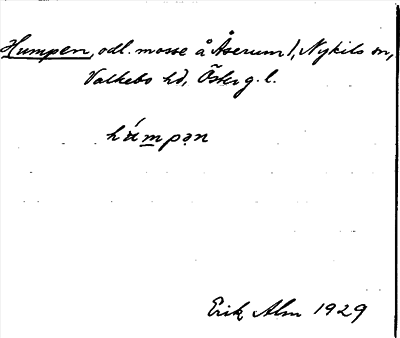 Humpen, odl. mosse å Åserum 1, Nykils sn,
Valkebo hd, Österg. l.
hu̇́mpən
Erik Alm 1929